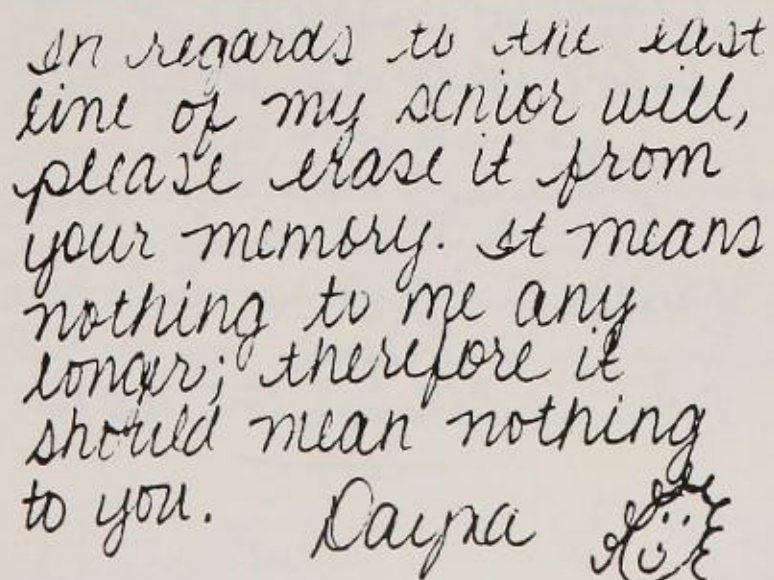 In regards to the last
line of my senior will,
please erase it from
your memory. It means
nothing to me any
longer; therefore it
should mean nothing
to you.